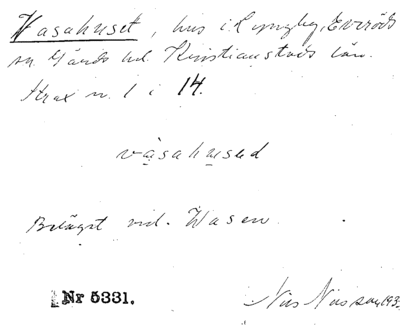 Vasahuset, hus i Lyngby, Everöds
sn. Gärds hd. Kristianstads län.
Strax n. l i 14.
våsahused
Beläget vid. Wasen.
Nr 5331.
Nils Nilsson, 193